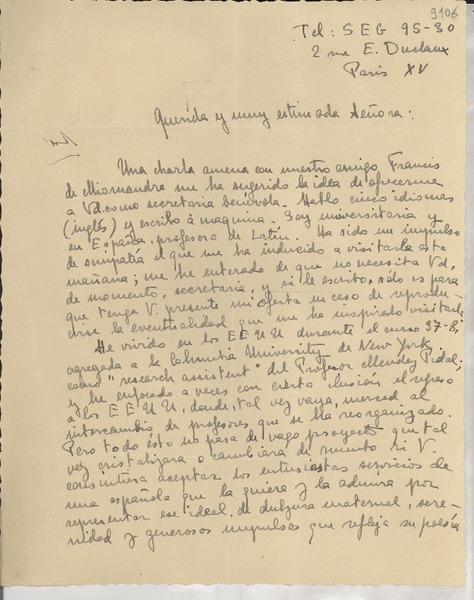 9106
Tel: SEG 95-30
2 rue E. Duclaux
Paris XV
Querida y muy estimada Señora:
Una charla amena con nuestro amigo Francis
de Miomandre me ha sugerido la idea de ofrecerme
a Vd. como secretaria benévola. Hablo cinco idiomas
(inglés) y escribo à maquina. Soy universitaria y
en España, profesora de Latín. Ha sido un impulso
de simpatía el que me ha inducido a visitarla esta
mañana; me he enterado de que no necesita Vd,
de momento, secretaria, y si le escribo, sólo es para
que tenga V. presente mi oferta en caso de reprodu-
cirse la eventualidad que me ha inspirado visitarla
He vivido en los EEUU durante el curso 37-8,
agregada a la Columbia University de New York
como "research assistent" del Profesor Menéndez Pidal;
y he enfocado a veces con cierta ilusion el regreso
a los EEUU, donde, tal vez vaya, merced al
intercambio de profesores que se ha reorganizado.
Pero todo ésto no pasa de vago proyecto que tal
vez cristalizara o cambiará de rumbo si V.
consintiera aceptar los entusiastas servicios de
una española que la quiere y la admira por
representar ese ideal de dulzura maternal, sere-
nidad y generosos impulsos que refleja su poesía